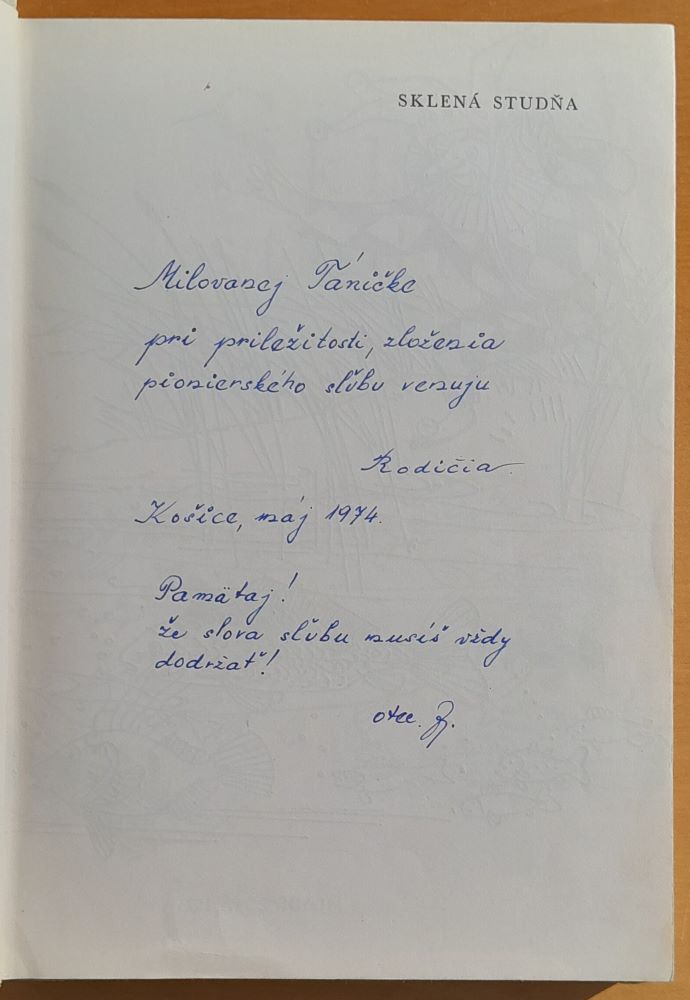 SKLENÁ STUDŇA
Milovanej Táničke
pri priležitosti, zloženia
pionierského slŭbu venuju
Rodičia.
Košice, máj 1974.
Pamätaj!
že slova slŭbu musíš vždy
dodržať!
otec.